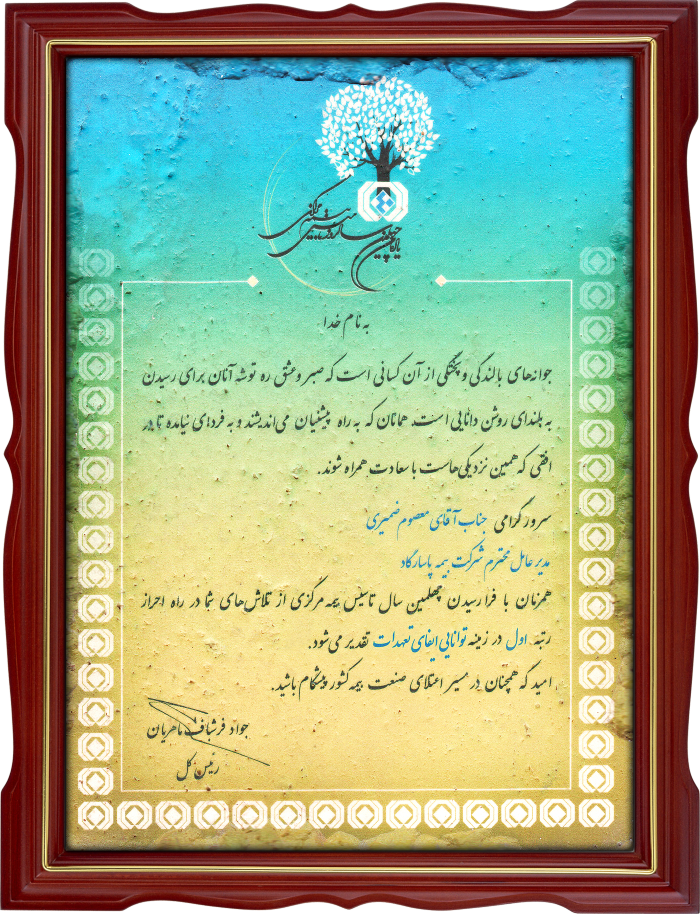 چهلمین سالروز تاسیس بیمه مرکزی
به نام خدا
جوانه‌های بالندگی و پختگی از آن کسانی است که صبر و عشق ره توشه آنان برای رسیدن
به بلندای روشن دانایی است. همانان که به راه پیشینیان می‌اندیشند و به فردای نیامده تا در
افقی که همین نزدیکی‌هاست با سعادت همراه شوند.
سرور گرامی جناب آقای معصوم ضمیری
مدیر عامل محترم شرکت بیمه پاسارگاد
همزمان با فرا رسیدن چهلمین سال تاسیس بیمه مرکزی از تلاش‌های شما در راه احراز
رتبه اول در زمینه توانایی ایفای تعهدات تقدیر می‌شود.
امید که همچنان در مسیر اعتلای صنعت بیمه کشور پیشگام باشید.
جواد فرشباف ماهریان
رئیس کل